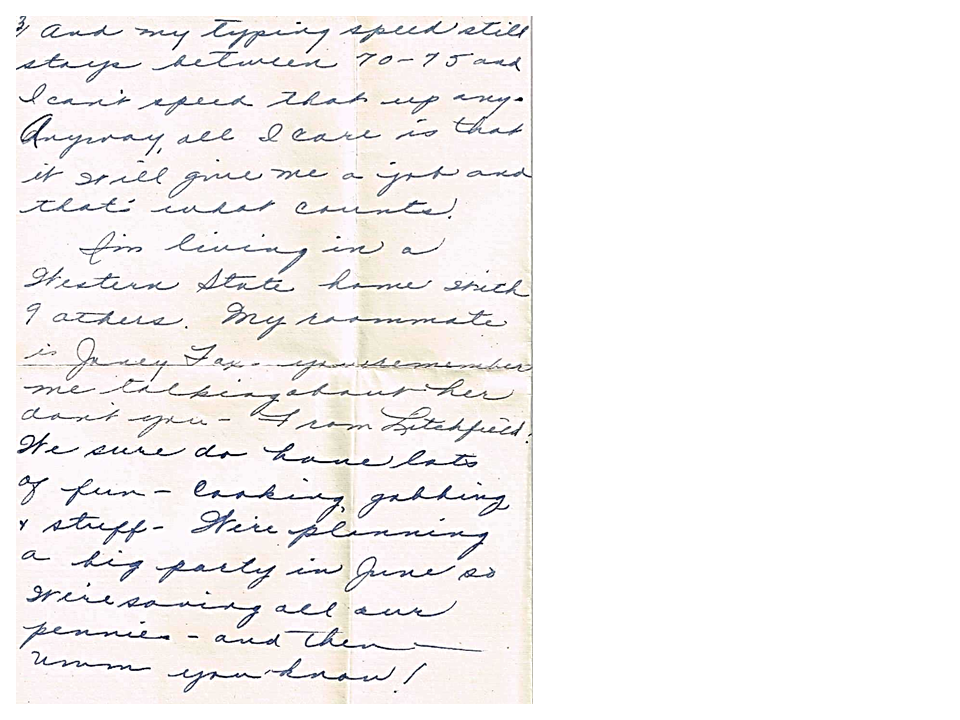 3, And my typing speed still
stays between 70-75 and
I can't speed that up any.
Anyway, all I care is that
it will give me a job and
that's what counts!
I'm living in a
Western State home with
9 others. My roommate
is Janey Fax - you remember
me talking about her
don't you - From Litchfield.
We sure do have lots
of fun - Cooking, gabbing
& stuff - We're planning
a big party in June so
We're saving all our
pennies - and then —
Umm you know!